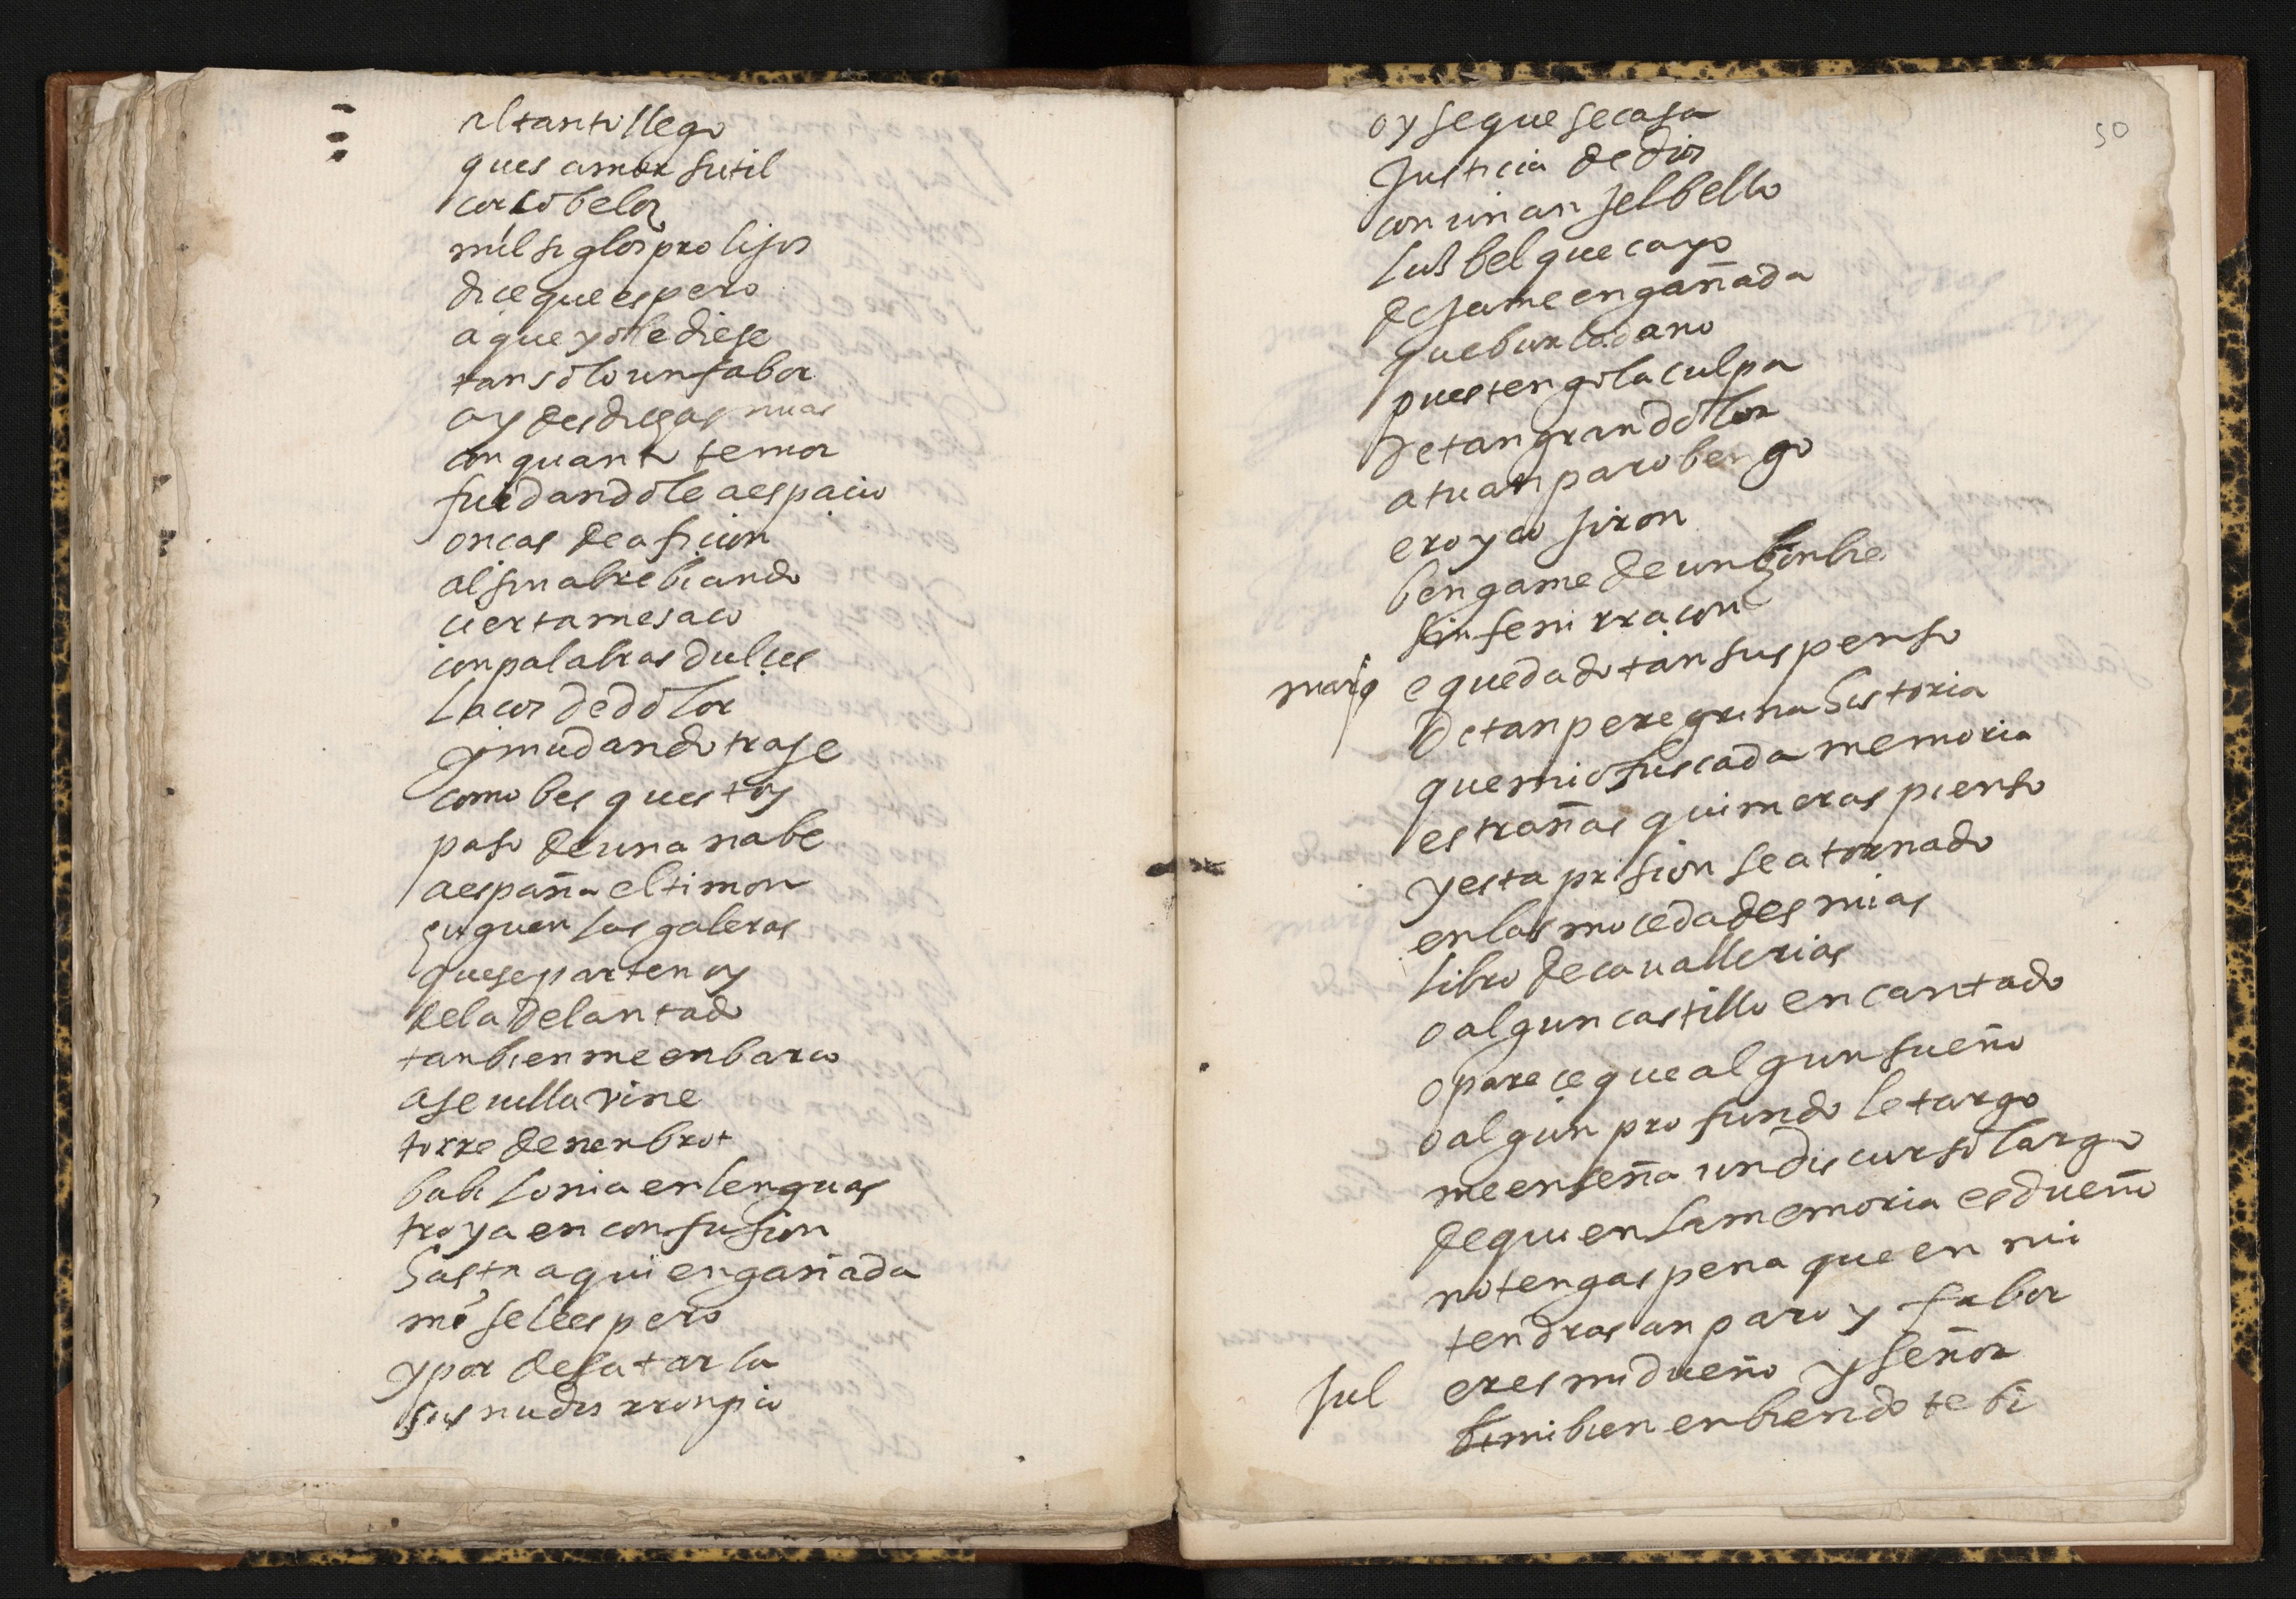 al tanto llego
ques amor sutil
corco beloz
mil siglos prolijos
dice que espero
a que yo le diese
tan solo un fabor
ay desdichas mias
con quanto temor
fui dandole aespacio
oncas de aficion
al fin abrebiando
cierta mesaco
con palabras dulces
lacos de dolor
y mudando traje
como bes questoy
paso de una nabe
a españa el timon
siguen las galeras
que se parten oy
del adelantado
tanbien me enbarco
a seuilla vine
torre de nenbrot
babilonia en lenguas
troya en confusion
hasta aqui engañada
me sele espero
y por desatarla
sus nudos rronpio
50
oy se que se casa
justicia de dios
con un anjel bello
lusbel que cayo
dejame engañada
que burlada no
pues tengo la culpa
de tan gran dolor
a tu anparo bengo
eroyco jiron
bengame de un honbre
sin fe ni rracon
marq e quedado tan suspenso
de tan peregrina historia
que mi ofuscada memoria
estrañas quimeras pienso
y esta prision se a tornado
en las mocedades mias
libro de cauallerias
o algun castillo encantado
o parece que algun sueño
o algun profundo letargo
me enseña un discurso largo
de quien la memoria es dueño
no tengas pena que en mi
tendras anparo y fabor
jul eres mi dueño y señor
mi bien en biendo te bi